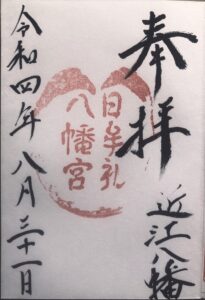 奉拝
近江八幡
日牟礼
八幡宮
令和四年八月三十一日